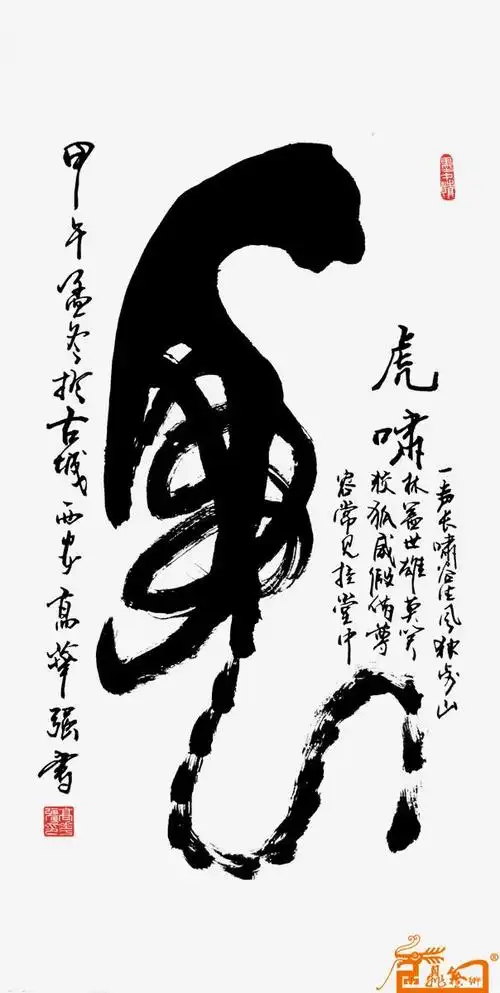 虎
虎啸
一声长啸谷生风独步山
林盖世雄莫笑
狡狐威假借尊
容常见挂堂中
甲午孟冬于古城西安高华强书